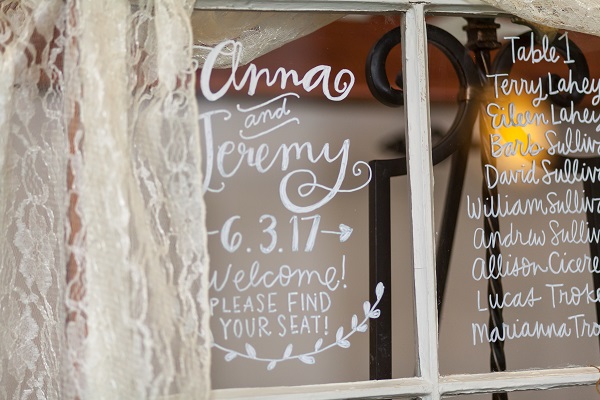 Anna
and
Jeremy
6.3.17
Welcome!
PLEASE FIND
YOUR SEAT!
Table 1
Terry Lahey
Eileen Lahey
Barb Sulliv
David Sulliv
William Sulliv
Andrew Sulliv
Allison Cicere
Lucas Troke
Marianna Tro